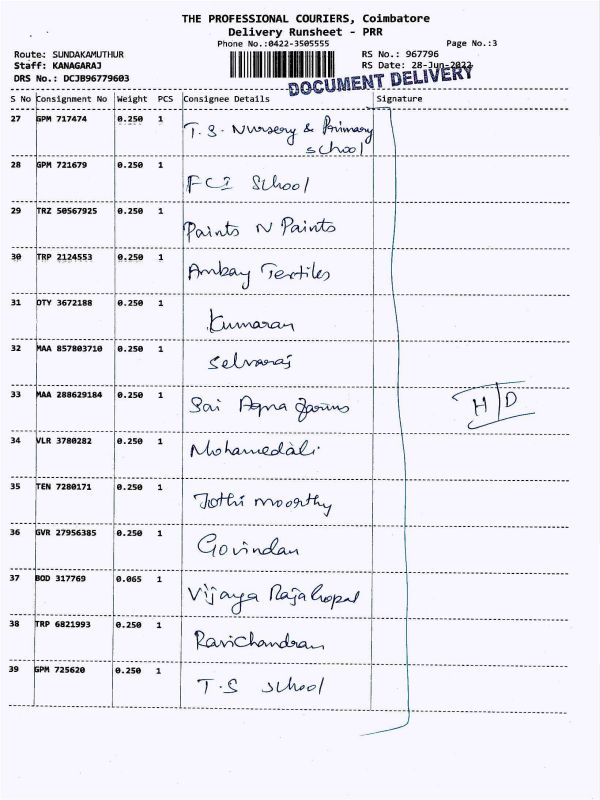 THE PROFESSIONAL COURIERS, Coimbatore
Delivery Runsheet - PRR
Phone No.:0422-3505555 Page No.:3
Route: SUNDAKAMUTHUR RS No.: 967796
Staff: KANAGARAJ RS Date: 28-Jun-2022
DRS No.: DCJB96779603
DOCUMENT DELIVERY
S No Consignment No Weight PCS Consignee Details Signature
27 GPM 717474 0.250 1 T.S. Nursery & Primary
school
28 GPM 721679 0.250 1 FCI School
29 TRZ 50567925 0.250 1 Paints N Paints
30 TRP 2124553 0.250 1 Ambay Textiles
31 OTY 3672188 0.250 1 Kumaran
32 MAA 857803710 0.250 1 Selvaraj
33 MAA 288629184 0.250 1 Sai Agna Farms
H/D
34 VLR 3780282 0.250 1 Mohamedali
35 TEN 7280171 0.250 1 Jothi moorthy
36 GVR 27956385 0.250 1 Govindan
37 BOD 317769 0.065 1 Vijaya Rajagopal
38 TRP 6821993 0.250 1 Ravichandran
39 GPM 725620 0.250 1 T.S School